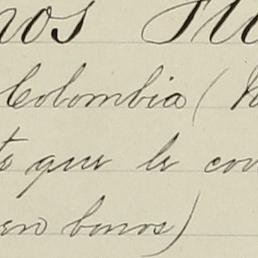 nos
Colombia (
te que le con
en bonos)